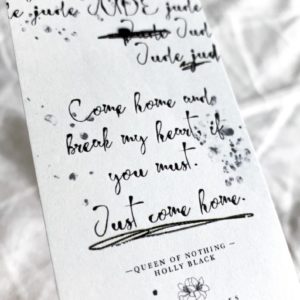 jude JUDE jude
Jude Jud
Jude jud
Come home and
break my heart if
you must.
Just come home.
—QUEEN OF NOTHING—
HOLLY BLACK